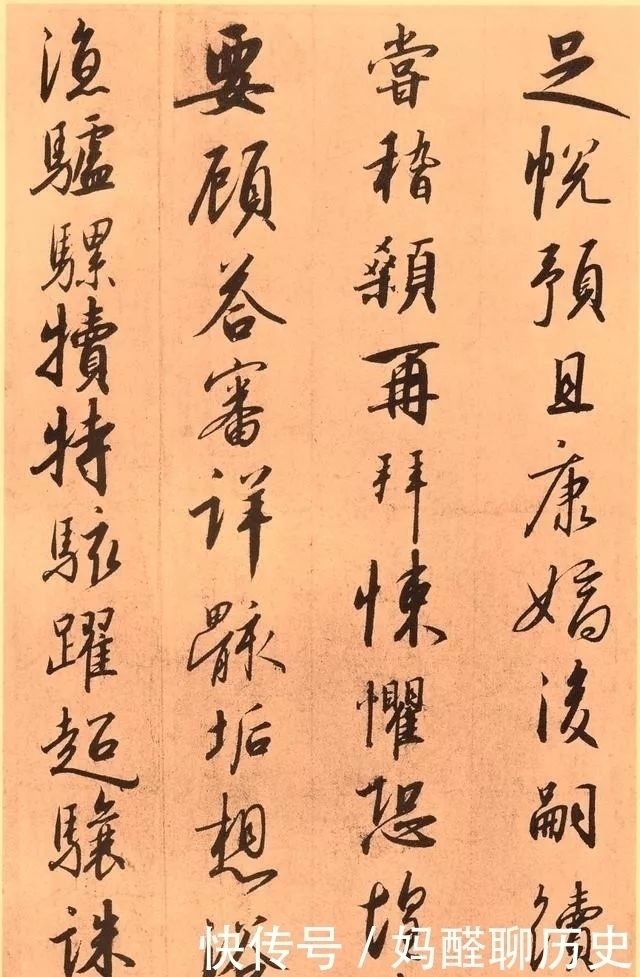 足悅預且康嫡後嗣續
嘗稽顙再拜悚懼恐
要顧答審詳骸垢想
涼驢騾犢特駭躍超驤誅
快传号/妈醛聊历史